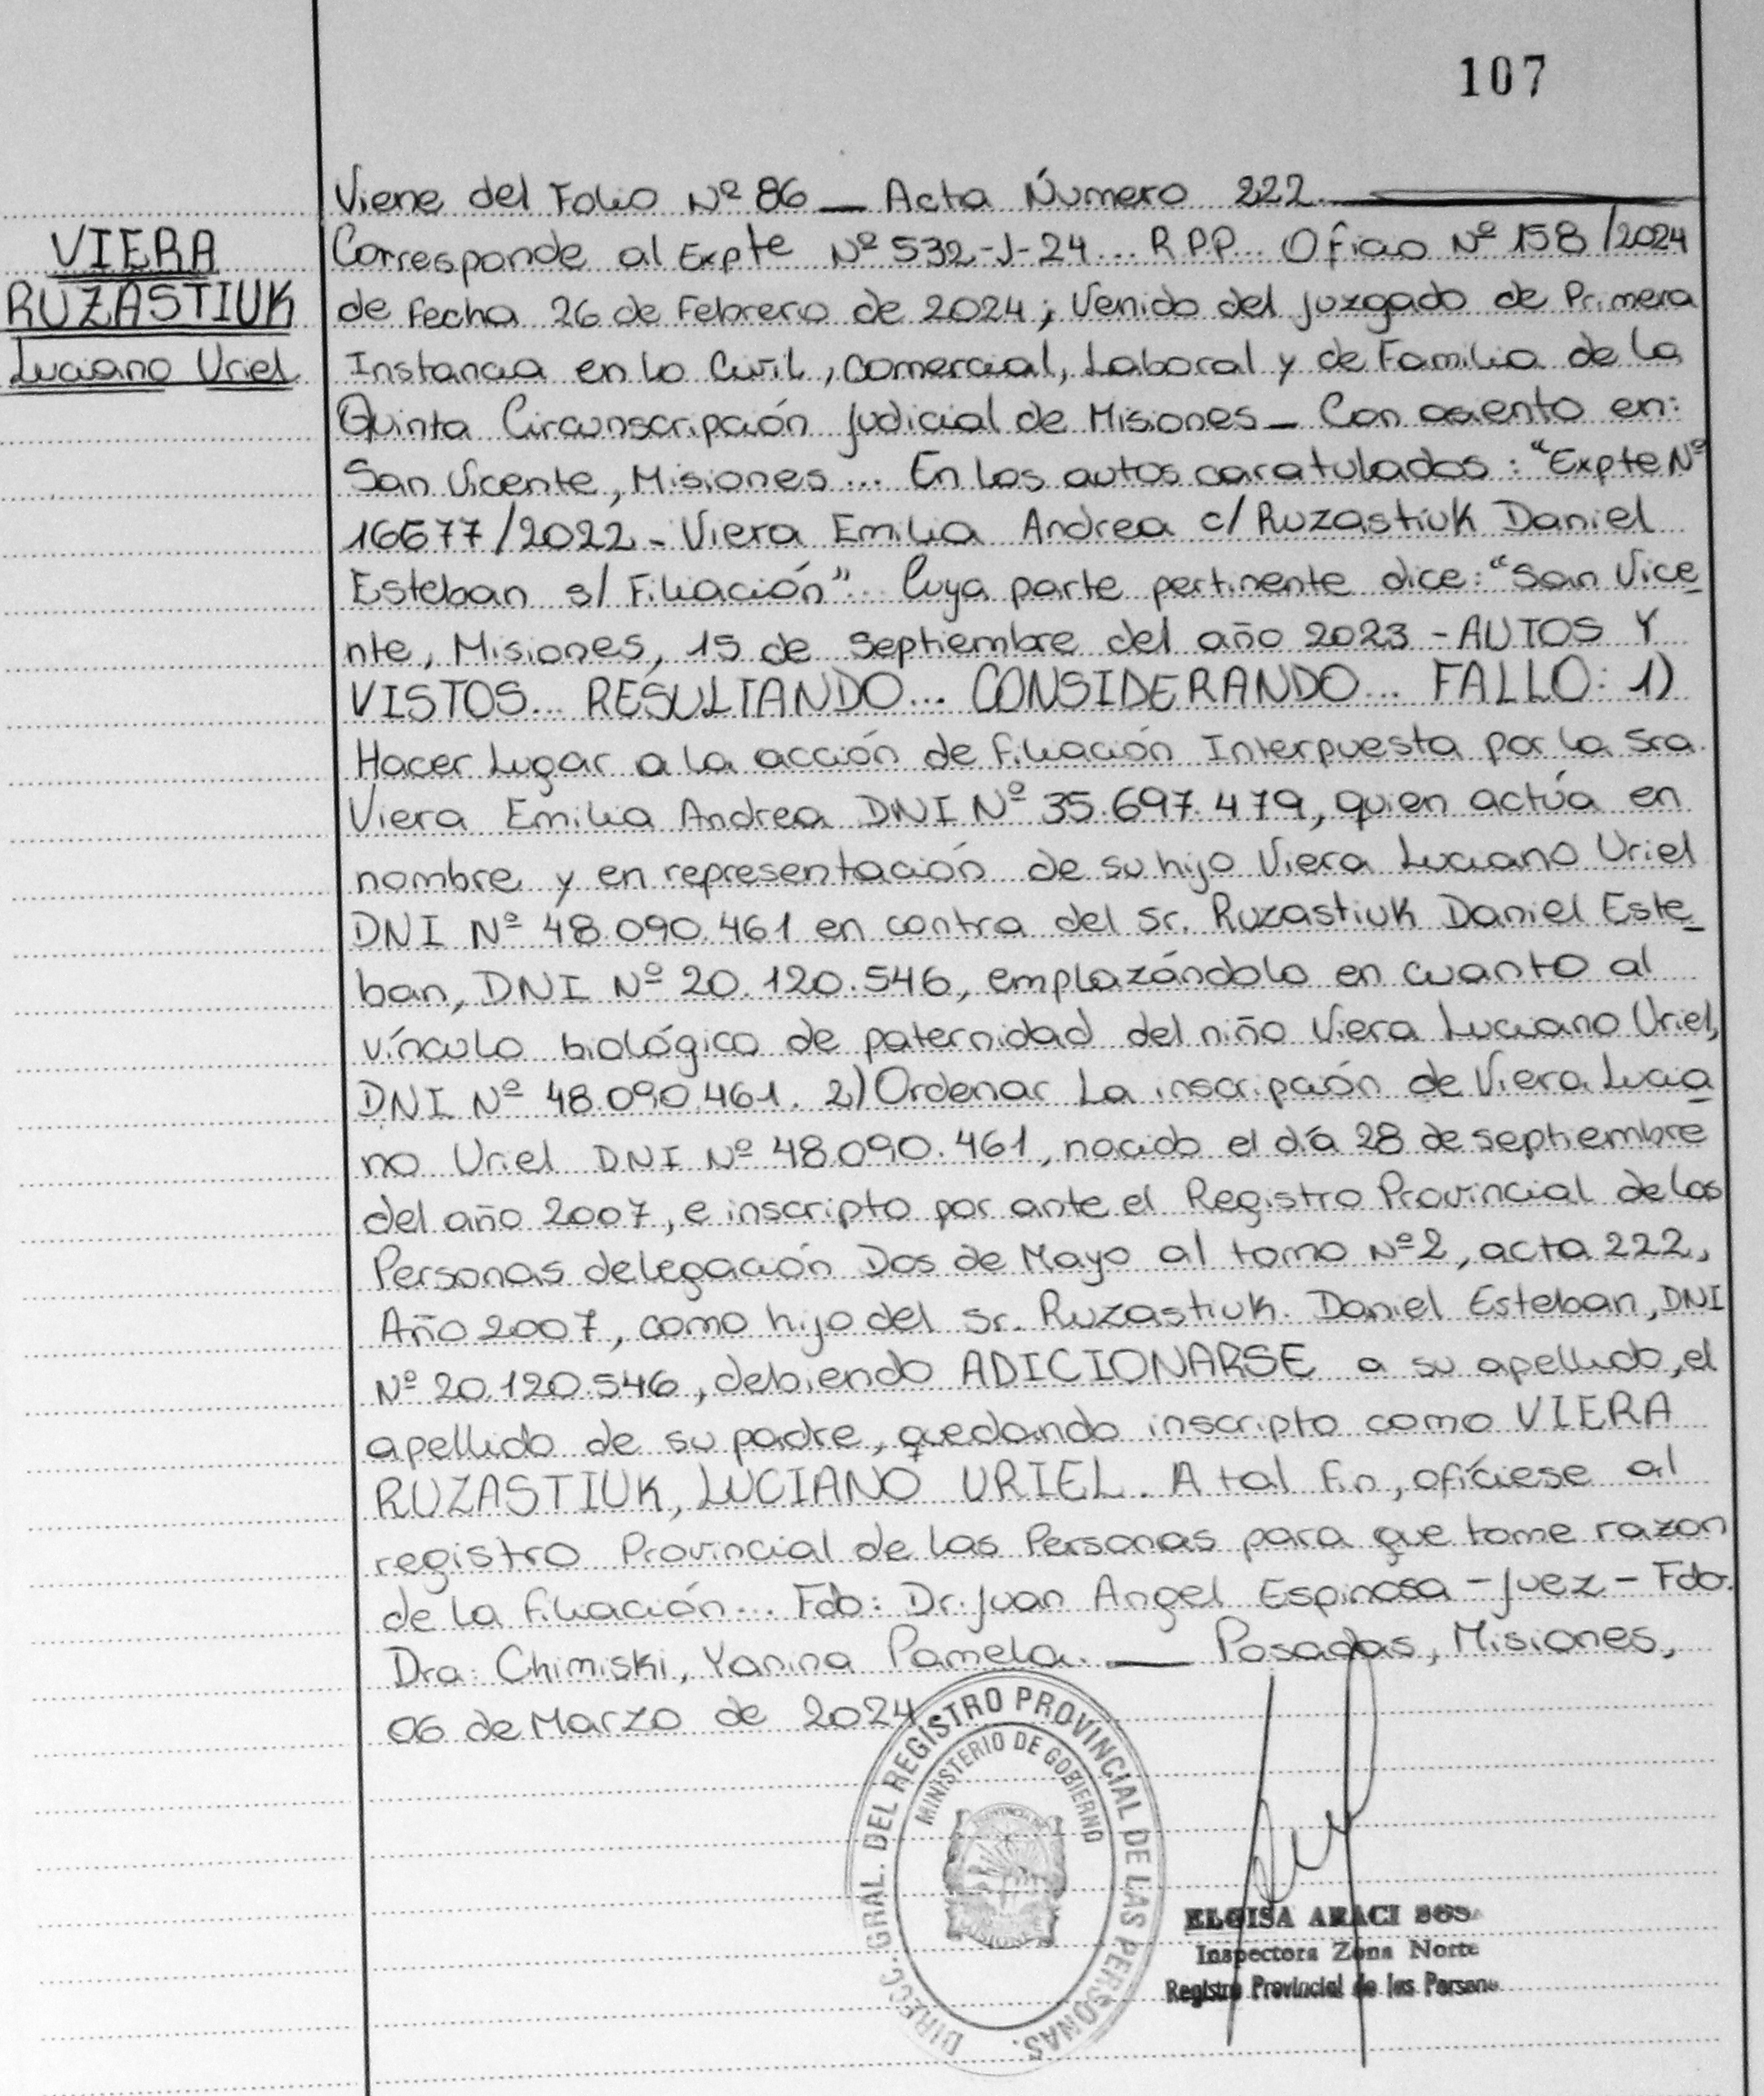 107
VIERA
RUZASTIUK
Luciano Uriel
Viene del Folio Nº 86 — Acta Número 222.
Corresponde al Expte Nº 532-J-24... R.P.P... Oficio Nº 158/2024
de fecha 26 de Febrero de 2024; Venido del Juzgado de Primera
Instancia en lo Civil, Comercial, Laboral y de Familia de la
Quinta Circunscripción Judicial de Misiones — Con asiento en:
San Vicente, Misiones... En los autos caratulados: "Expte Nº
16677/2022 - Viera Emilia Andrea c/ Ruzastiuk Daniel
Esteban s/ Filiación"... Cuya parte pertinente dice: "San Vice
nte, Misiones, 15 de Septiembre del año 2023 - AUTOS Y
VISTOS... RESULTANDO... CONSIDERANDO... FALLO: 1)
Hacer Lugar a la acción de filiación Interpuesta por la Sra.
Viera Emilia Andrea DNI Nº 35.697.479, quien actúa en
nombre y en representación de su hijo Viera Luciano Uriel
DNI Nº 48.090.461 en contra del Sr. Ruzastiuk Daniel Este
ban, DNI Nº 20.120.546, emplazándolo en cuanto al
vínculo biológico de paternidad del niño Viera Luciano Uriel,
DNI Nº 48.090.461. 2) Ordenar La inscripción de Viera Lucia
no Uriel DNI Nº 48.090.461, nacido el día 28 de septiembre
del año 2007, e inscripto por ante el Registro Provincial de las
Personas delegación Dos de Mayo al tomo Nº 2, acta 222,
Año 2007, como hijo del Sr. Ruzastiuk. Daniel Esteban, DNI
Nº 20.120.546, debiendo ADICIONARSE a su apellido, el
apellido de su padre, quedando inscripto como VIERA
RUZASTIUK, LUCIANO URIEL. A tal fin, ofíciese al
registro Provincial de las Personas para que tome razon
de la filiación... Fdo: Dr. Juan Angel Espinosa - Juez - Fdo.
Dra: Chimiski, Yanina Pamela. — Posadas, Misiones,
06 de Marzo de 2024
DIRECC. GRAL. DEL REGISTRO PROVINCIAL DE LAS PERSONAS.
MINISTERIO DE GOBIERNO
ELOISA ARACI SOSA
Inspectora Zona Norte
Registro Provincial de las Persona